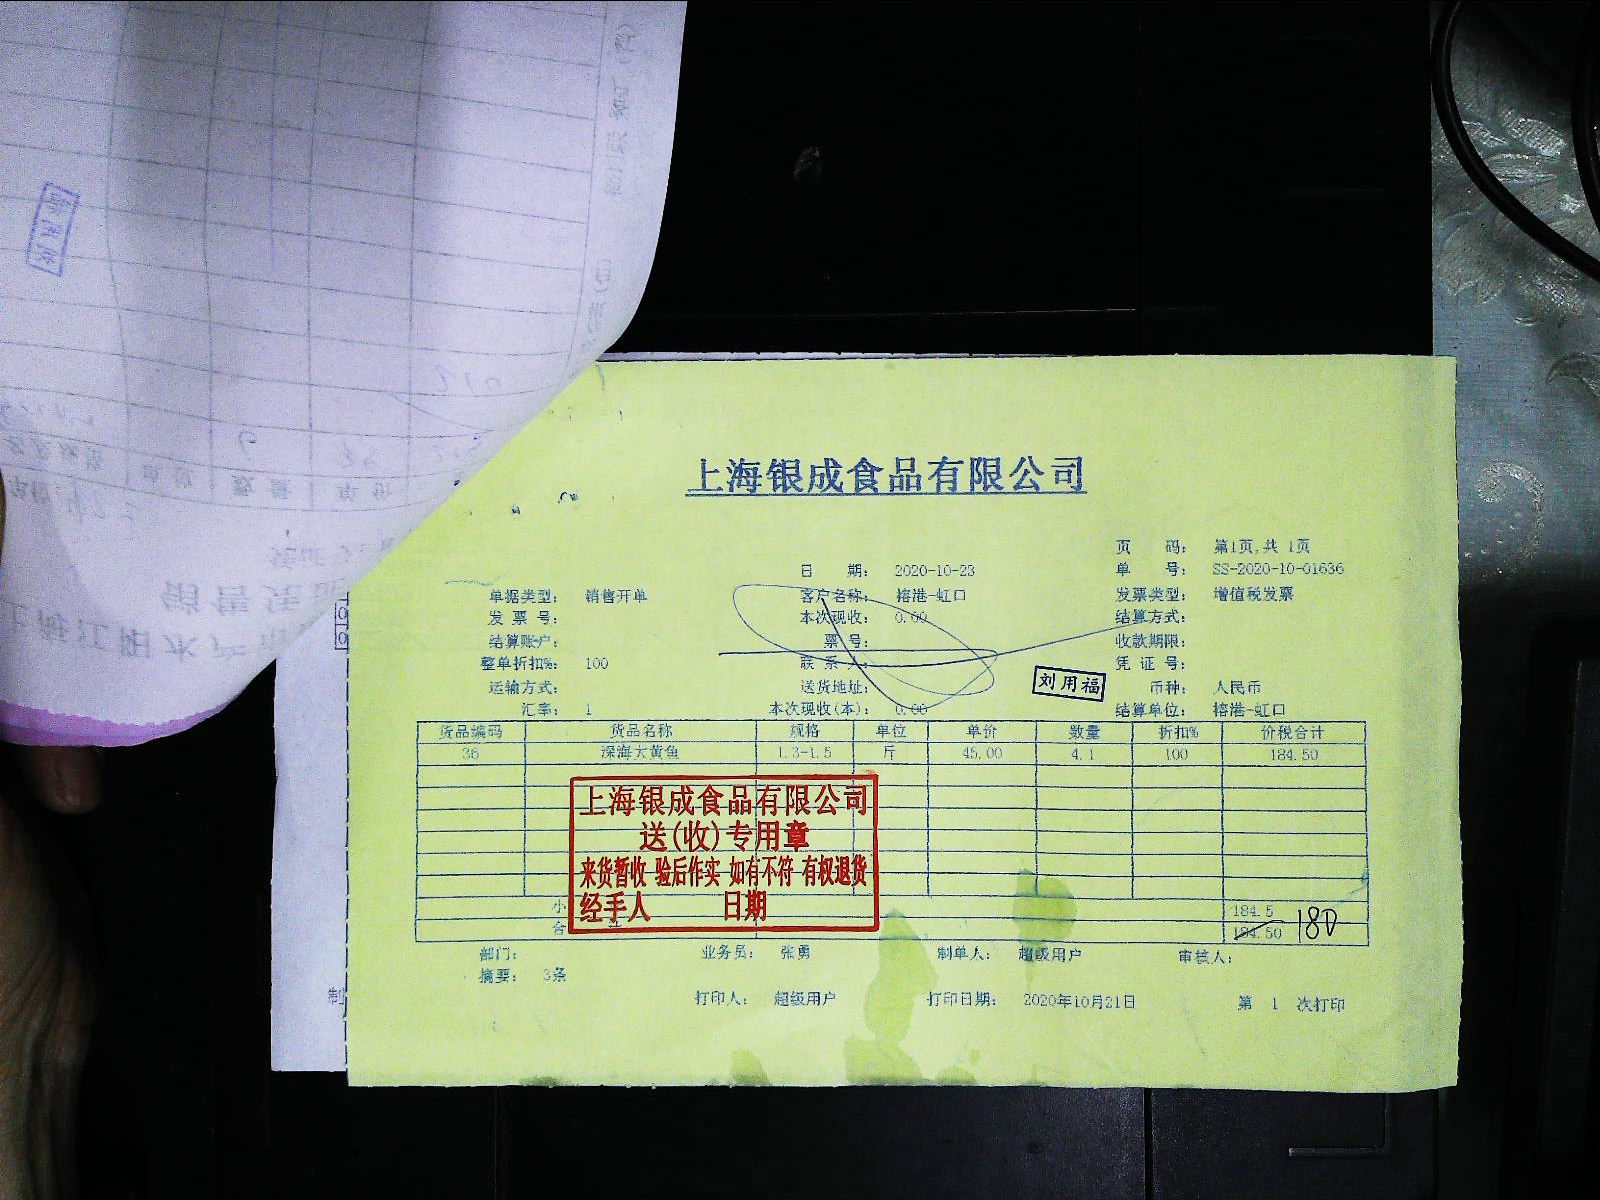 上海银成食品有限公司
页 码： 第1页,共 1页
日 期： 2020-10-23 单 号： SS-2020-10-01636
单据类型： 销售开单 客户名称： 榕港-虹口 发票类型： 增值税发票
发 票 号： 本次现收： 0.00 结算方式：
结算账户： 票 号： 收款期限：
整单折扣%： 100 联 系 人： 凭 证 号：
运输方式： 送货地址： 刘用福 币种： 人民币
汇率： 1 本次现收(本)： 0.00 结算单位： 榕港-虹口
货品编码 货品名称 规格 单位 单价 数量 折扣% 价税合计
36 深海大黄鱼 1.3-1.5 斤 45.00 4.1 100 184.50
上海银成食品有限公司
送(收)专用章
来货暂收 验后作实 如有不符 有权退货
经手人 日期
小 184.5
合 184.50 180
部门： 业务员： 张勇 制单人： 超级用户 审核人：
摘要： 3条
制
打印人： 超级用户 打印日期： 2020年10月21日 第 1 次打印